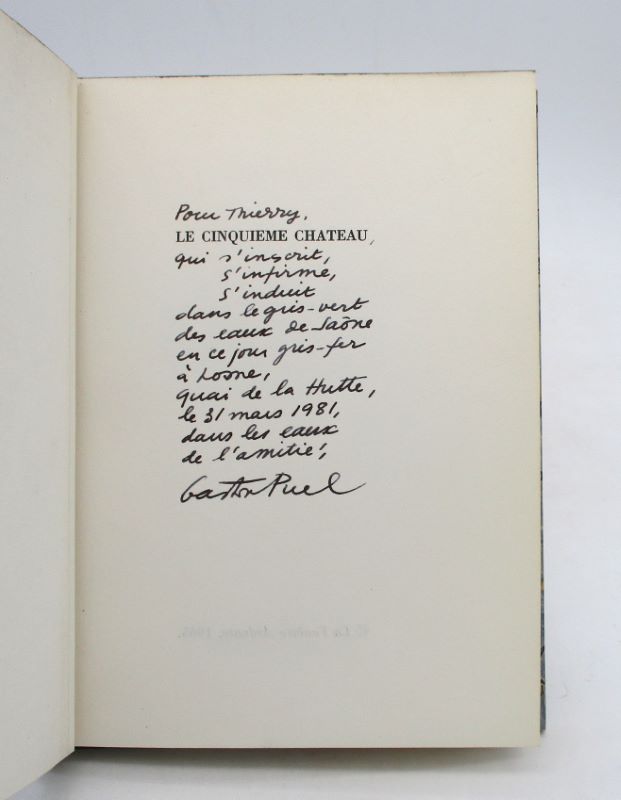 Pour Thierry,
LE CINQUIEME CHATEAU,
qui s'inscrit,
s'infirme,
s'induit
dans le gris-vert
des eaux de Saône
en ce jour gris-fer
à Losne,
quai de la Hutte,
le 31 mars 1981,
dans les eaux
de l'amitié,
Gaston Puel
© La Fenêtre Ardente, 1965.